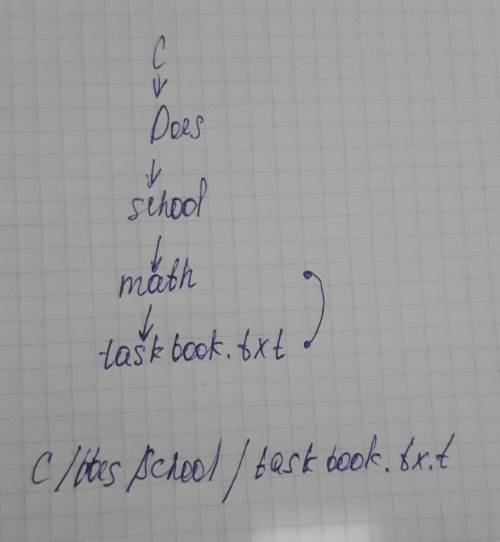 C
Does
school
math
taskbook.txt
C/Does/school/taskbook.tx.t